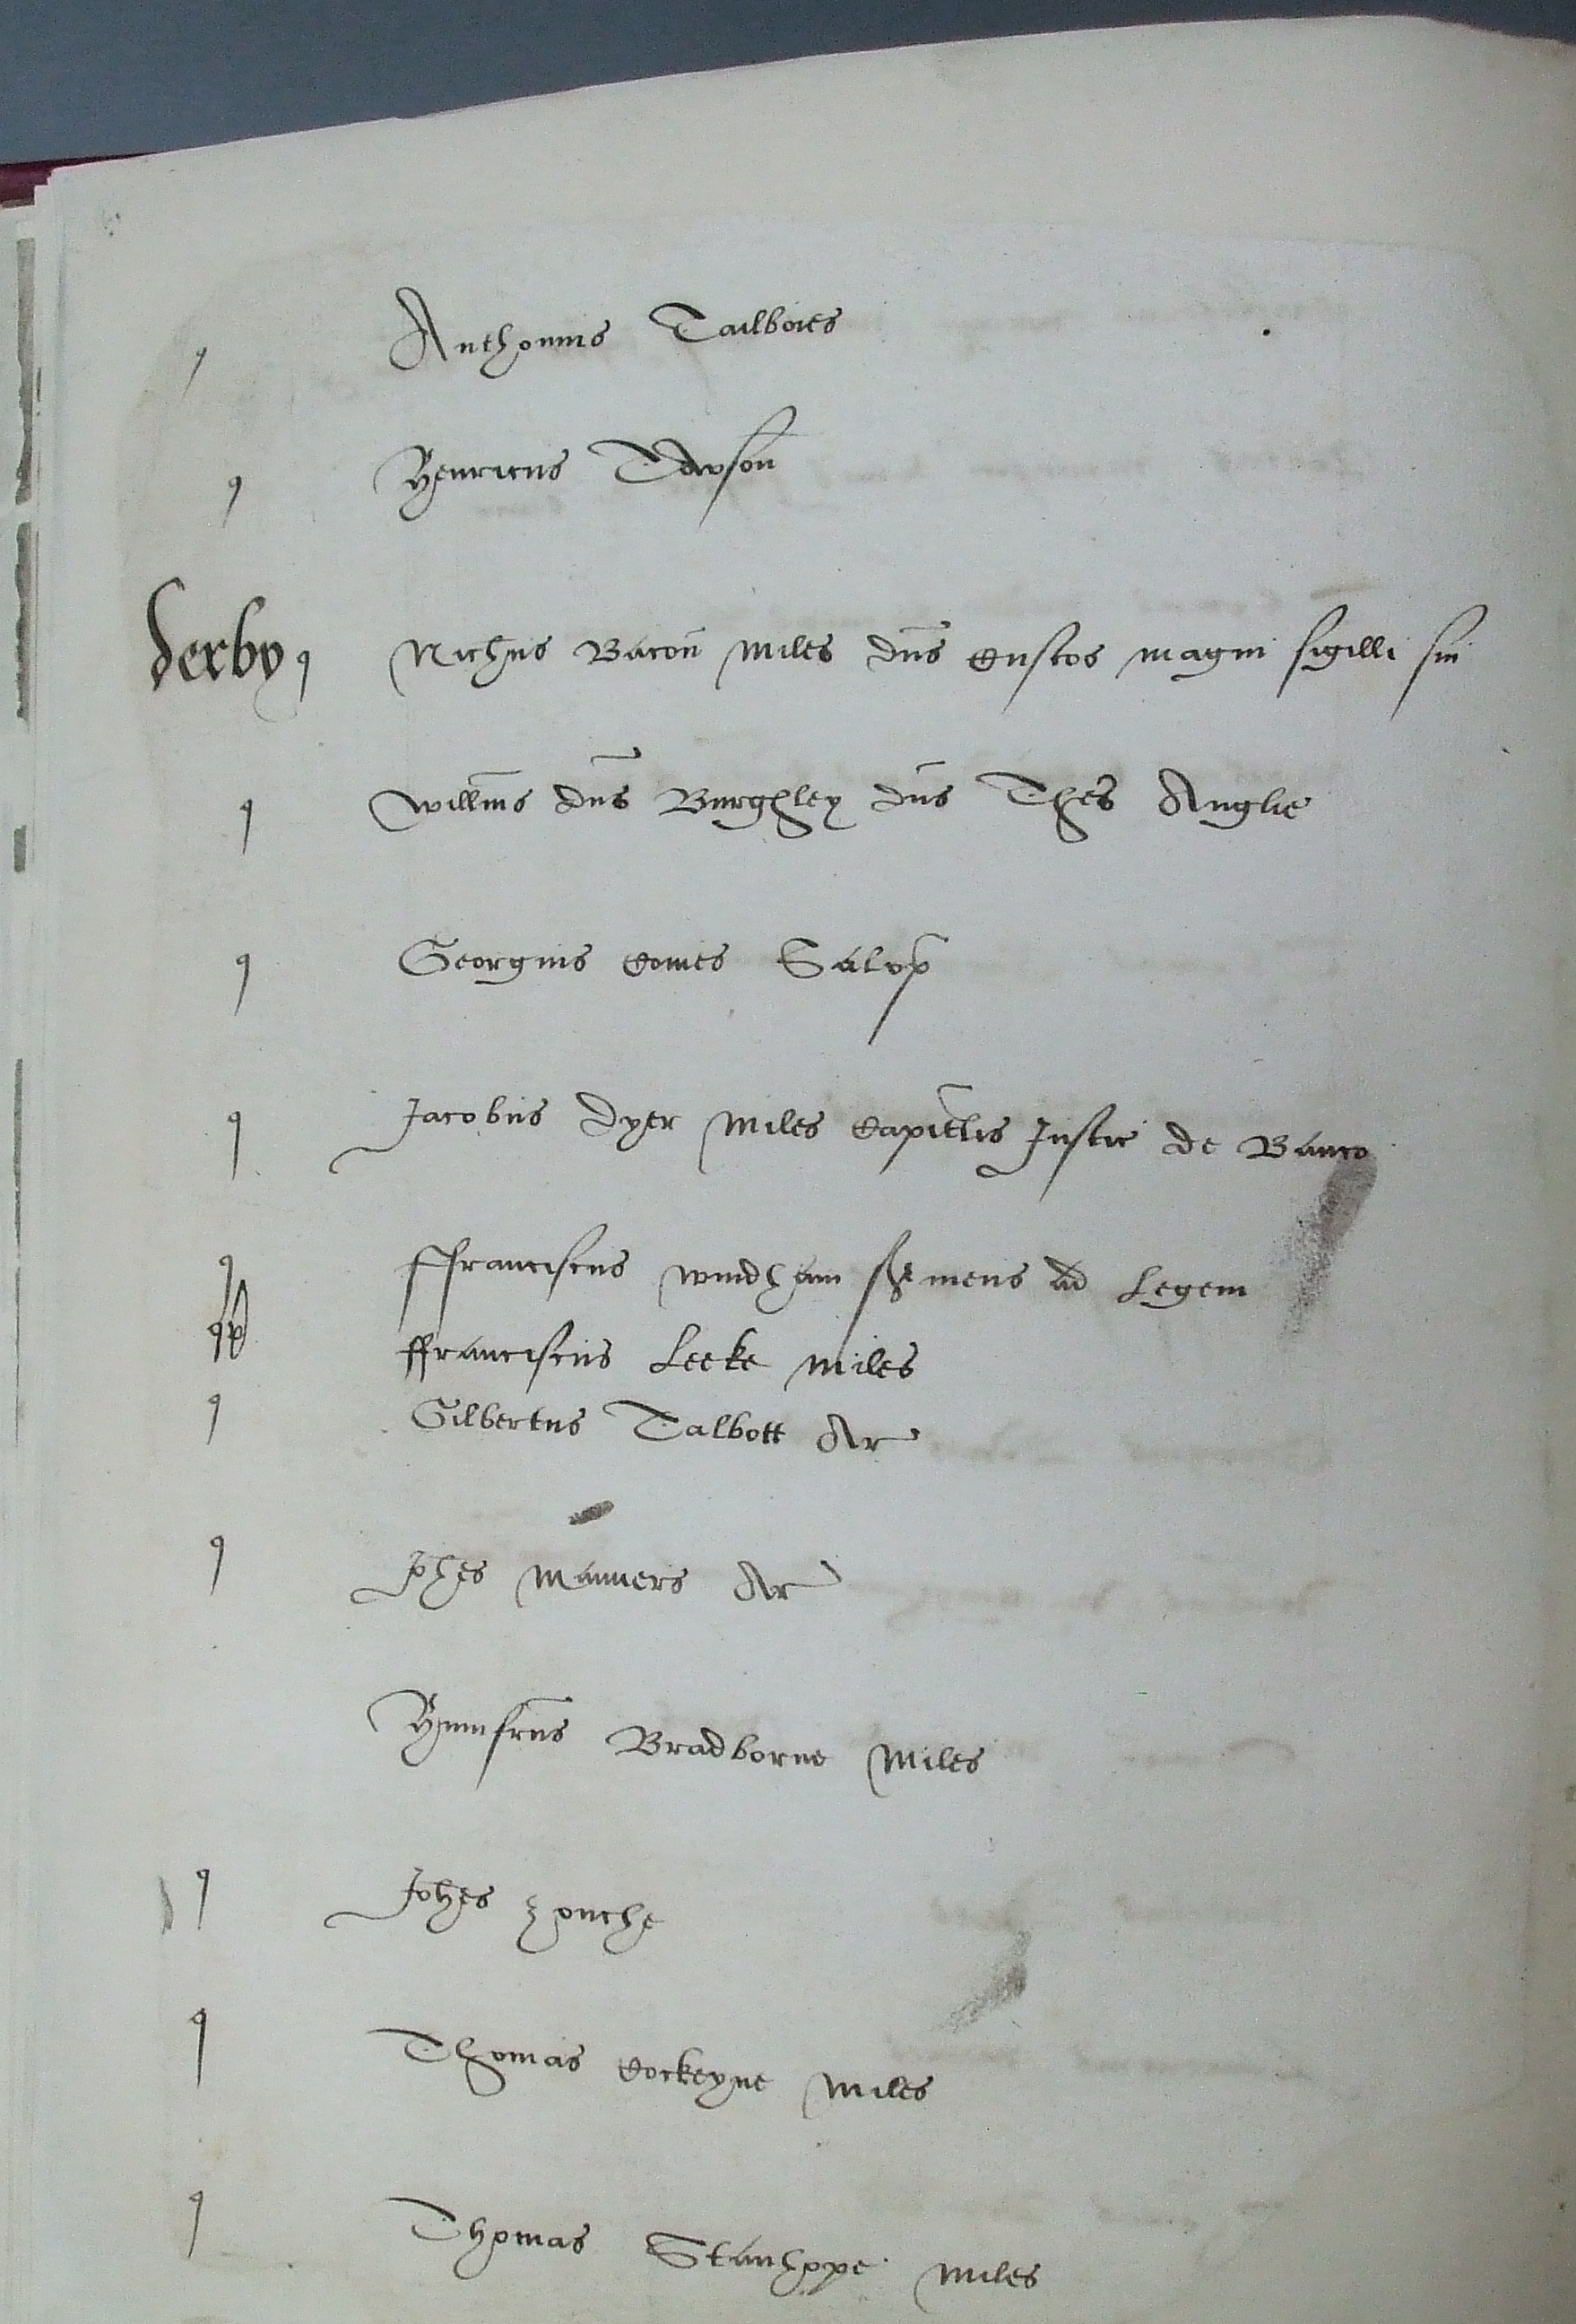 Anthonius Tailboies
Henricus Dawson
Derby q Nichus Bacon Miles dns Custos magni sigilli sui
q Willms dns Burghley dns Thes Anglie
q Georgius Comes Salop
q Jacobus Dyer Miles Capitlis Justic de Banco
q ffranciscus Windham s͛mens ad Legem
ffranciscus Leeke Miles
q Gilbertus Talbott Ar
q Johes Manners Ar
Humfrus Bradborne Miles
q Johes Zouche
q Thomas Cockeyne Miles
q Thomas Stanhope Miles